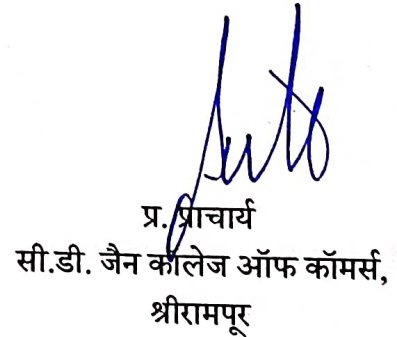 प्र. प्राचार्य
सी.डी. जैन कॉलेज ऑफ कॉमर्स,
श्रीरामपूर